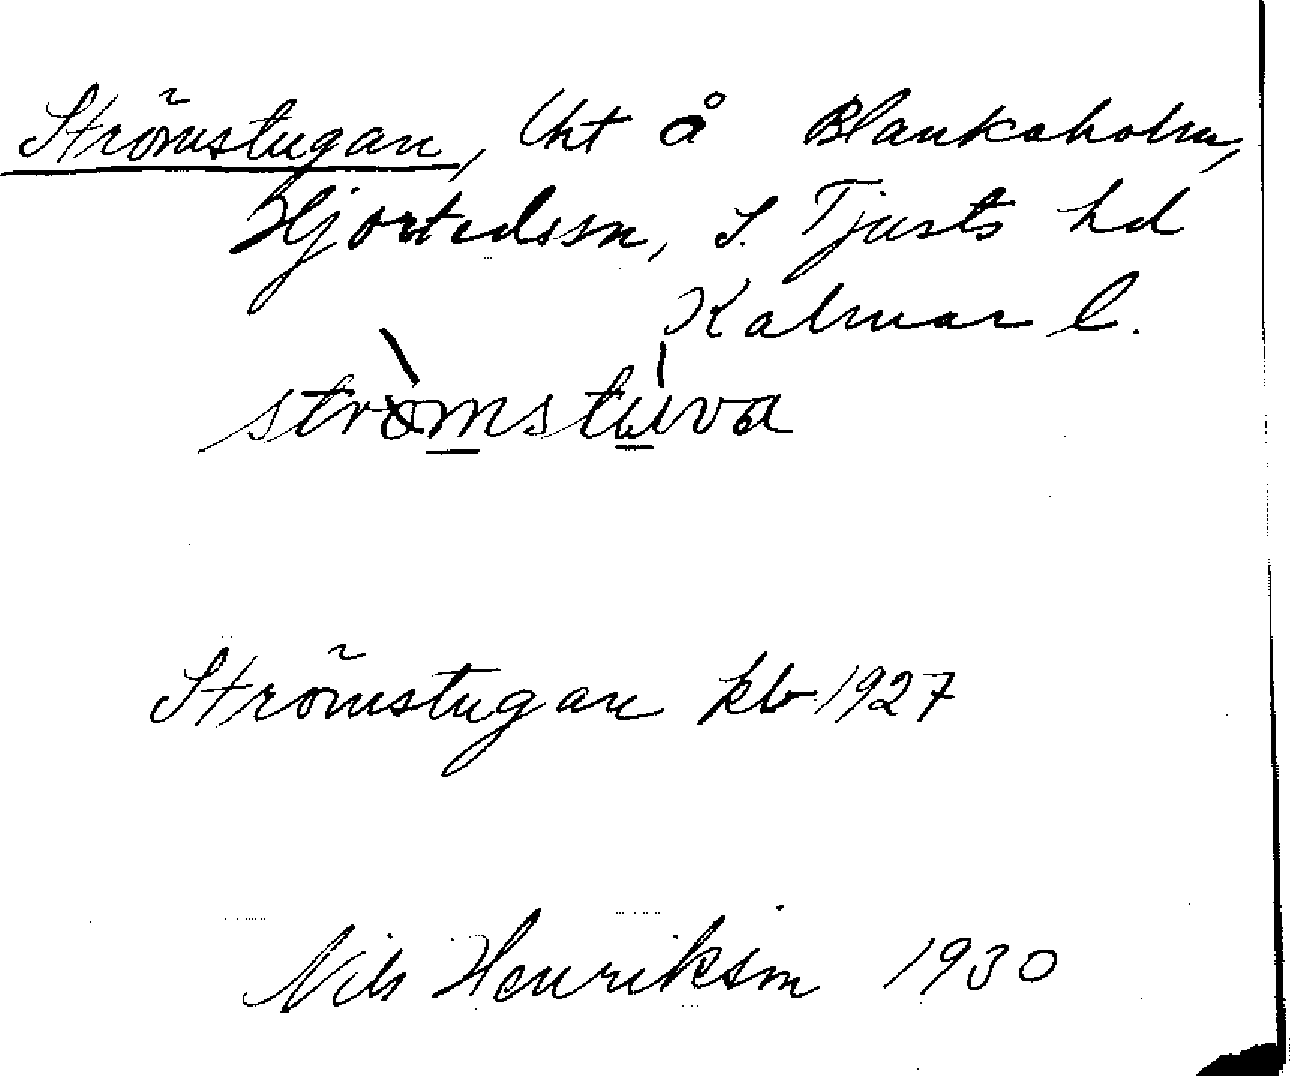 Strömstugan, lht å Blankaholm,
Hjortedssn, S. Tjusts hd
Kalmar l.
strömstuva
Strömstugan kb 1927
Nils Henriksm 1930